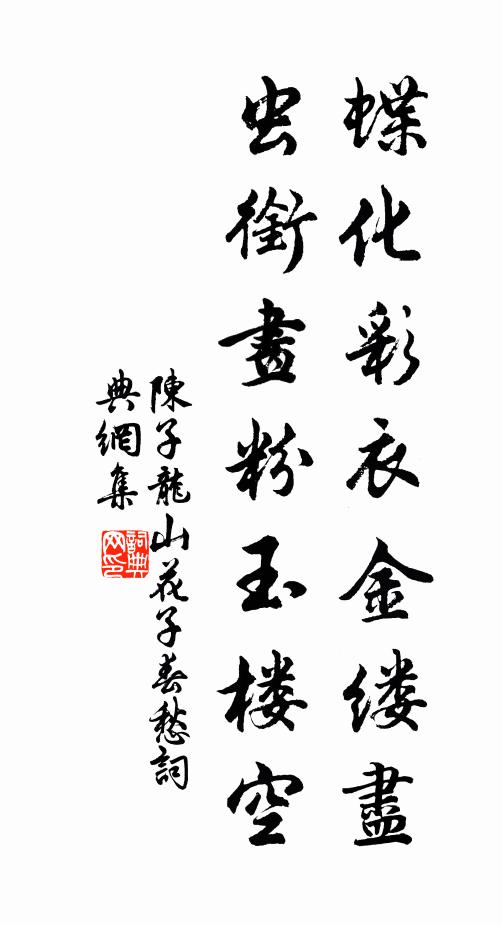 蝶化彩衣金缕盡
虫銜畫粉玉楼空
陳子龍山花子春愁詞
典網集
詞典网印